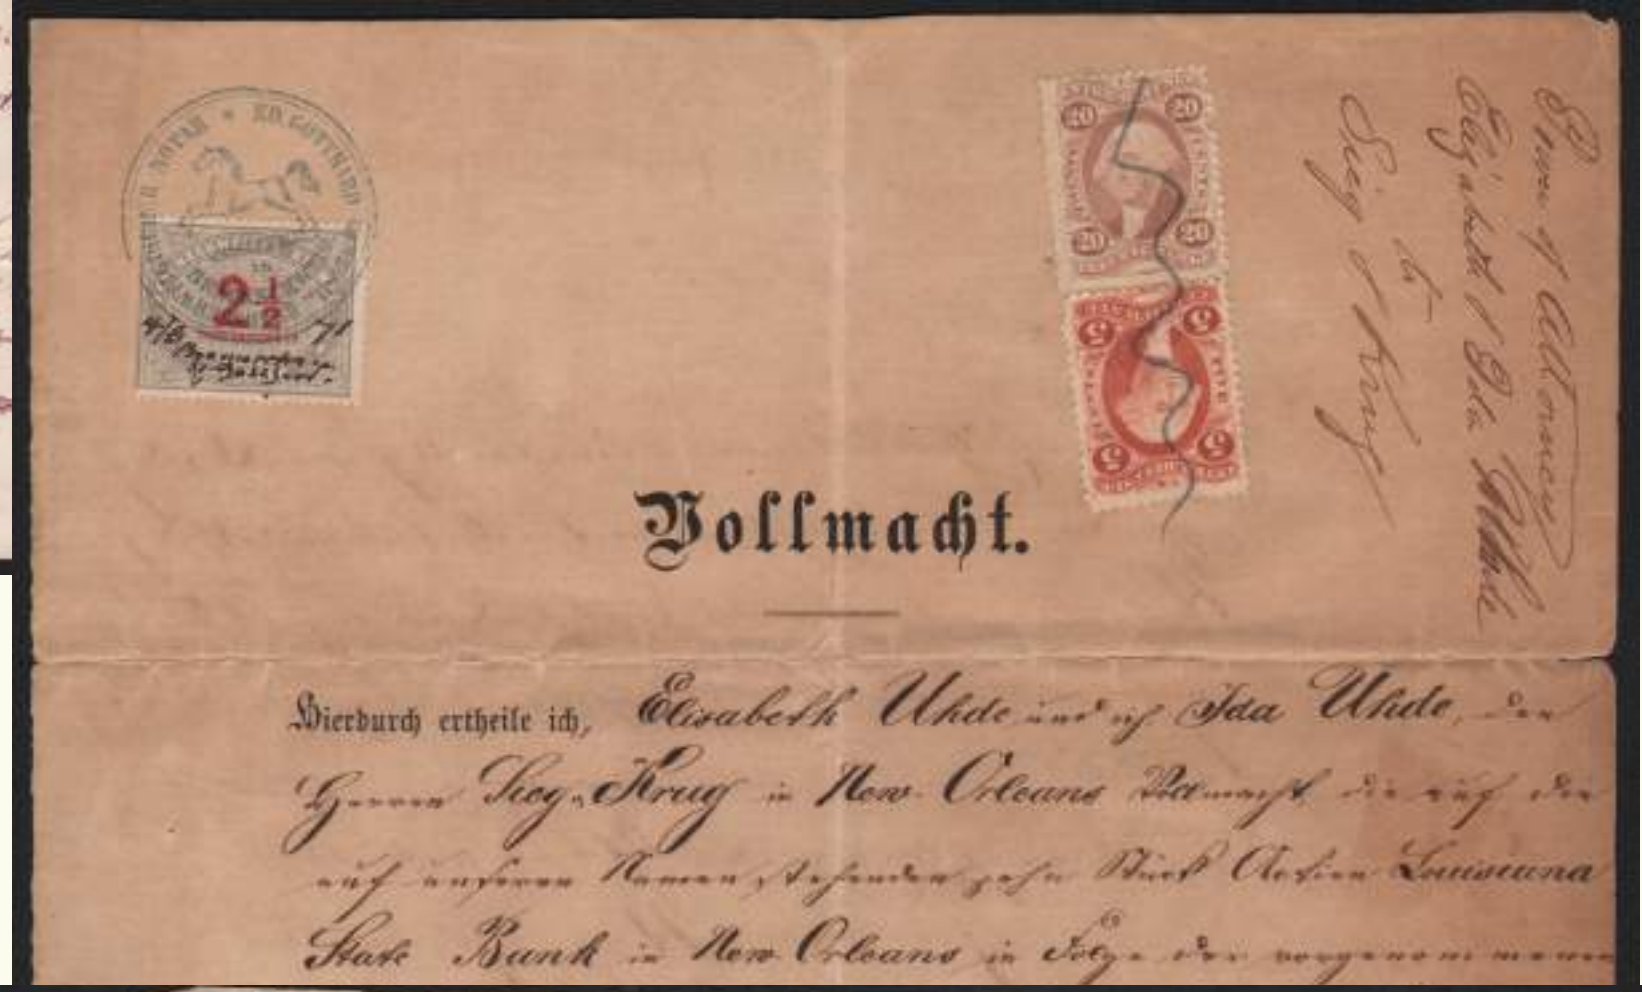 NOTAR * ED. GOTTHARD
2½
71
20 20
20 20
5 5
5 5
Power of Attorney
Elisabeth & Ida Uhde
to
Sieg & Krug
Vollmacht.
Hierdurch ertheile ich, Elisabeth Uhde und ich Ida Uhde, den
Herren Sieg & Krug in New Orleans Vollmacht, die auf den
auf unseren Namen stehenden zehn Stück Actien Louisiana
State Bank in New Orleans in Folge der vorgenommenen